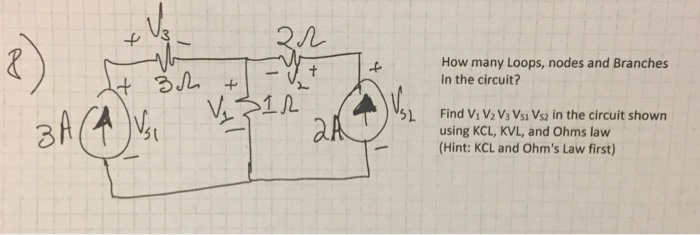 8)
+ V3 -
2Ω
3Ω
- V2 +
+
+
+
3A
Vs1
V1
1Ω
2A
Vs2
-
-
-
How many Loops, nodes and Branches
In the circuit?
Find V1 V2 V3 VS1 VS2 in the circuit shown
using KCL, KVL, and Ohms law
(Hint: KCL and Ohm's Law first)